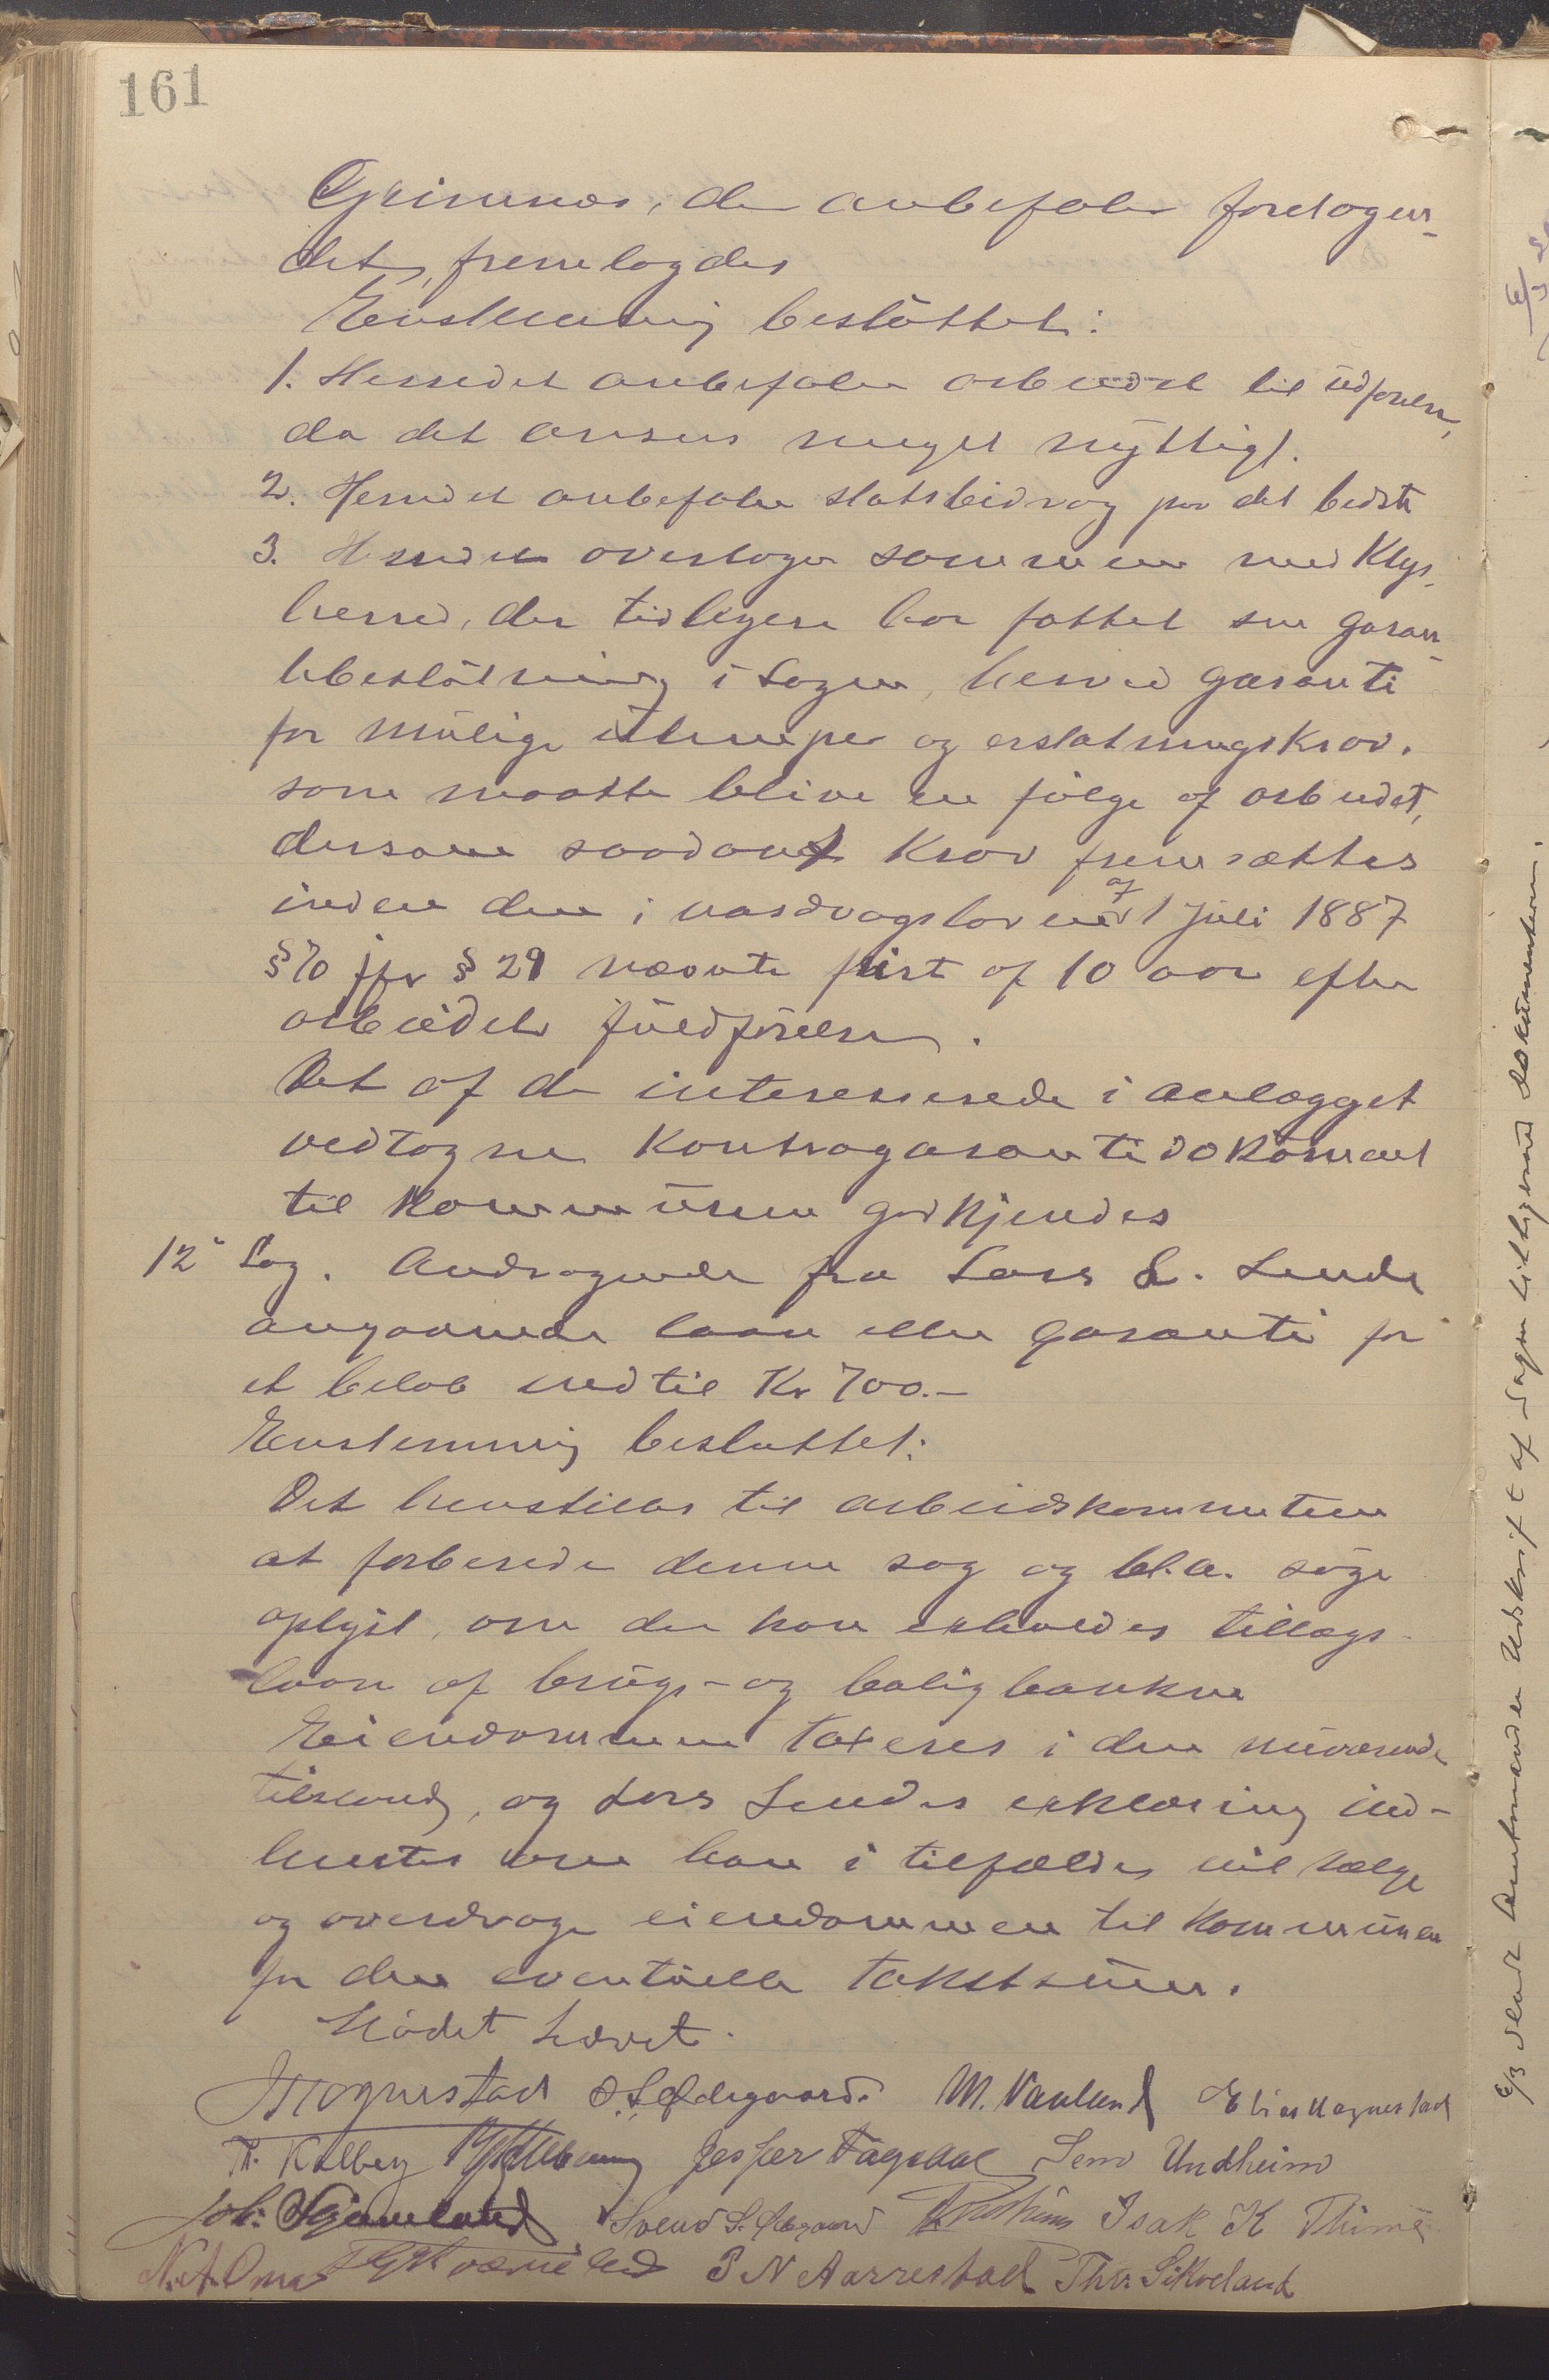 161
Grimnæs, der anbefaler foretagen-
det, fremlagdes
Enstemmig besluttet:
1. Herredet anbefaler arbeidet til udførelse,
da det ansees meget nyttigt.
2. Herredet anbefaler statsbidrag paa det bedste
3. Herredet overtager sammen med Klep
herred, der tidligere har fattet sin garan-
tibeslutning i sagen, herved garanti
for mulige ulemper og erstatningskrav,
som maatte blive en følge af arbeidet,
dersom saadant krav fremsættes
inden den i vasdragsloven af 1 juli 1887
§ 70 jfr § 29 nævnte frist af 10 aar efter
arbeidets fuldførelse.
Det af de interesserede i anlægget
vedtagne kontragarantidokument
til kommunen godkjendes
12 Sag. Andragende fra Lars L. Lende
angaaende laan eller garanti for
et beløb indtil Kr 700.-
Enstemmig besluttet:
Det henstilles til arbeidskommiteen
at forberede denne sag og bl.a. søge
oplyst, om der kan erholdes tillægs-
laan af brugs- og boligbanken
Eiendommen taxeres i den nuværende
tilstand, og Lars Lendes erklæring ind-
hentes om han i tilfælde vil sælge
og overdrage eiendommen til kommunen
for den eventuelle takstsum.
Mødet hævet.
Mognestad O. S. Ødegaard. M. Vaulund Elias Hagnestad
Th. Kalberg Jesper Fagedal Sem Undheim
Joh: Skjæveland Svend S. Ødegaard Isak K Thime
N. A. Oma P N Aarrestad Thor Sikveland
Efz sendt Amtmanden Udskrift af sagen tilligemed dokumenterne.